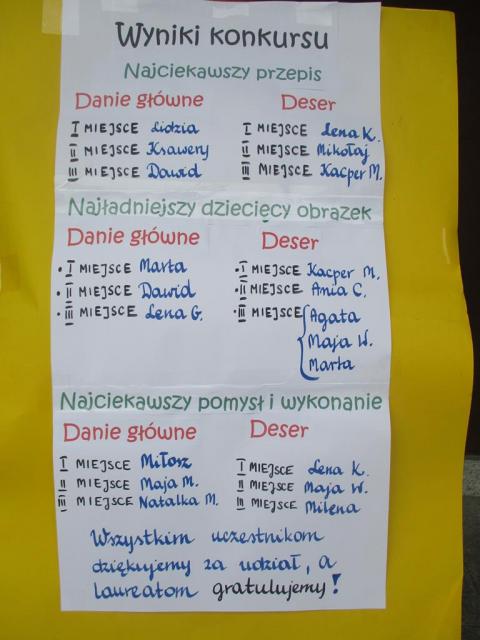 Wyniki konkursu
Najciekawszy przepis
Danie główne
I MIEJSCE Lidzia
II MIEJSCE Ksawery
III MIEJSCE Dawid
Deser
I MIEJSCE Lena K.
II MIEJSCE Mikołaj
III MIEJSCE Kacper M.
Najładniejszy dziecięcy obrazek
Danie główne
• I MIEJSCE Marta
• II MIEJSCE Dawid
• III MIEJSCE Lena G.
Deser
• I MIEJSCE Kacper M.
• II MIEJSCE Ania C.
• III MIEJSCE { Agata
Maja W.
Marta
Najciekawszy pomysł i wykonanie
Danie główne
I MIEJSCE Miłosz
II MIEJSCE Maja M.
III MIEJSCE Natalka M.
Deser
I MIEJSCE Lena K.
II MIEJSCE Maja W.
III MIEJSCE Milena
Wszystkim uczestnikom
dziękujemy za udział, a
laureatom gratulujemy!